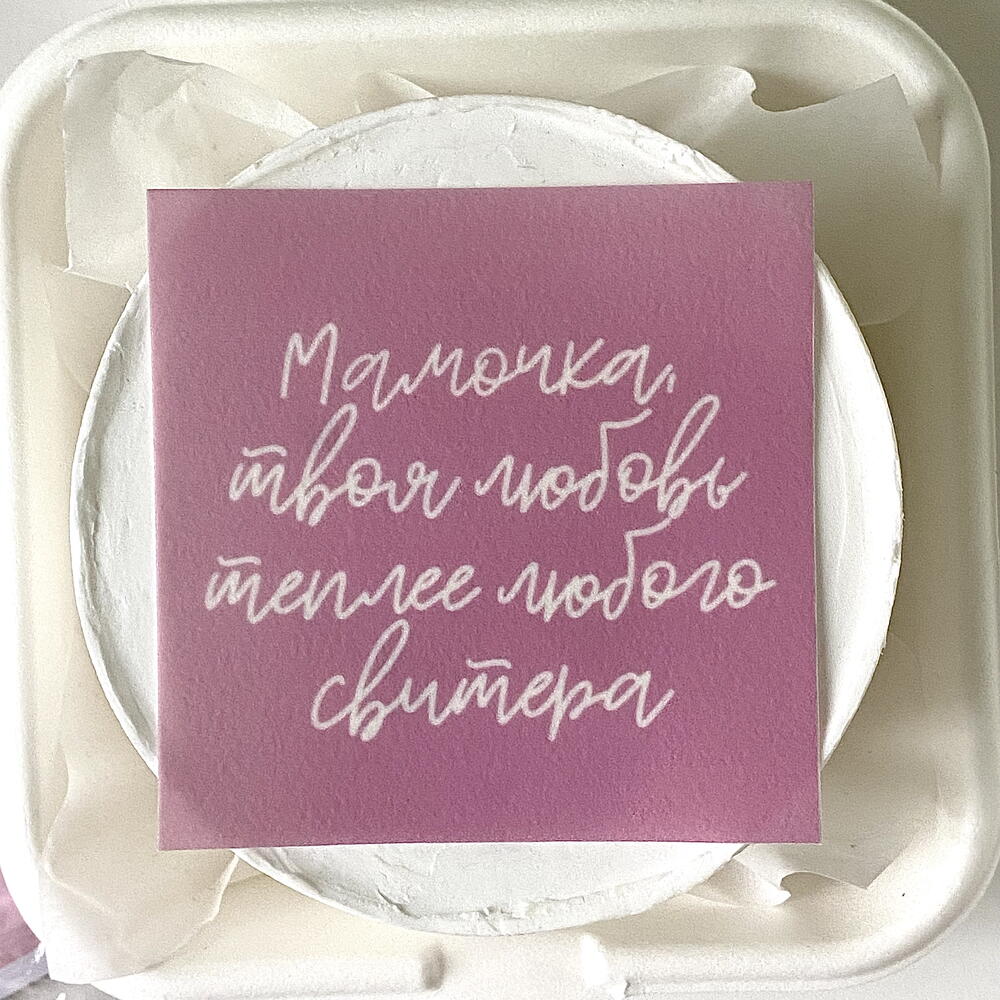 Мамочка,
твоя любовь
теплее любого
свитера